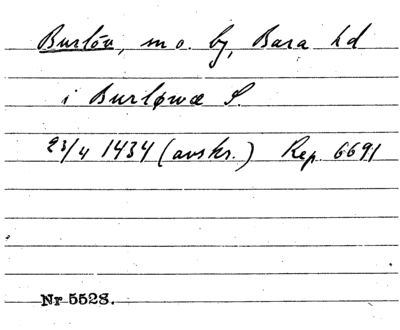 Burlöv, m o. by, Bara hd
i Burløwæ S.
23/4 1434 (avskr.) Rep. 6691
Nr 5528.